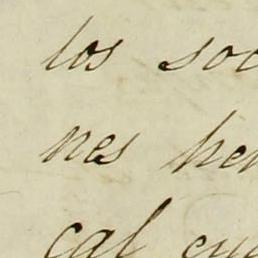 los soc
nes her
cal cu